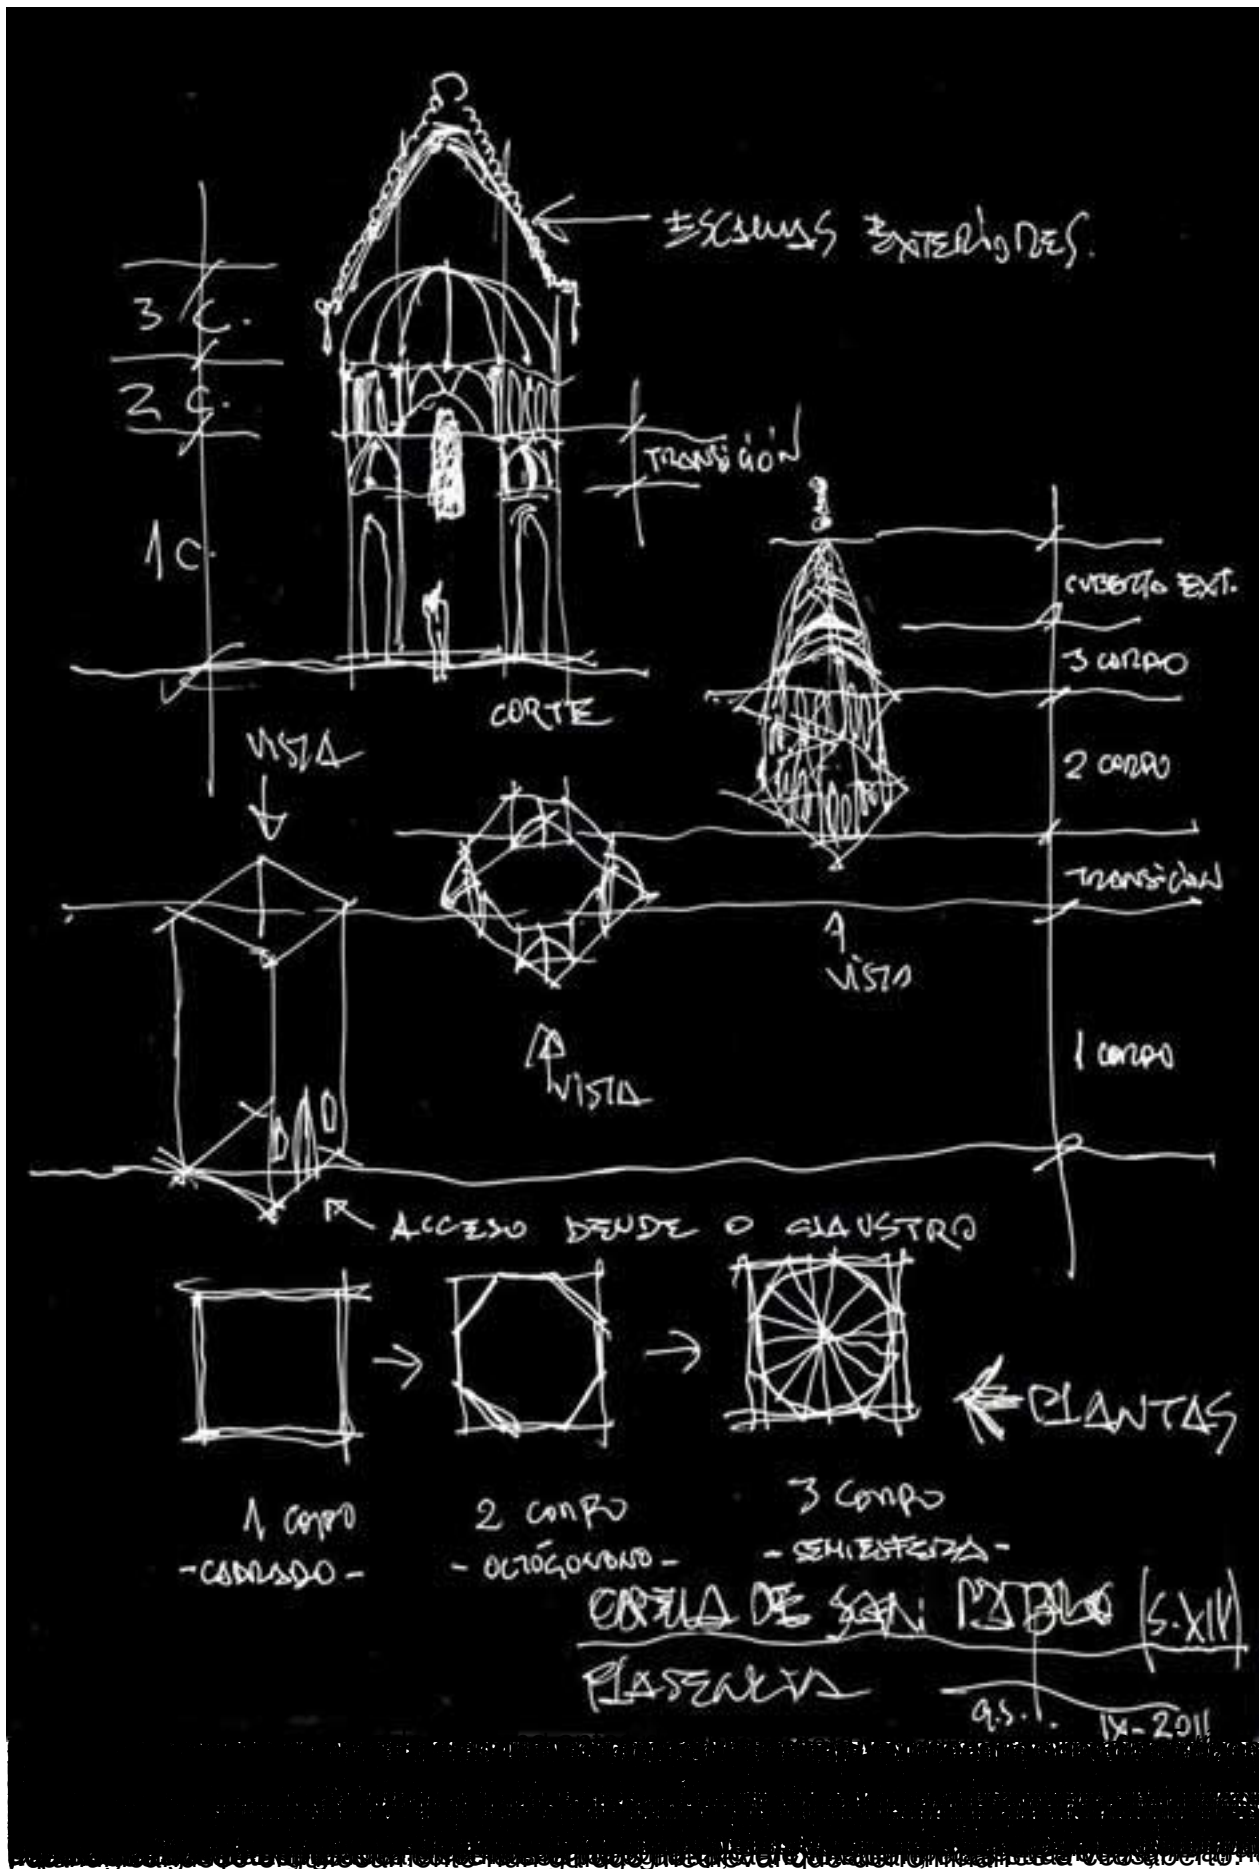 ESCAMAS EXTERIORES.
3 C.
2 C.
TRANSICIÓN
1 C.
CUBERTA EXT.
3 CORPO
CORTE
VISTA
2 CORPO
TRANSICIÓN
VISTA
1 CORPO
VISTA
ACCESO DENDE O CLAUSTRO
PLANTAS
1 CORPO
- CADRADO -
2 CORPO
- OCTÓGONO -
3 CORPO
- SEMIESFERA -
CAPELA DE SAN PABLO (S. XIV)
PLASENCIA
a.s.l. IX-2011